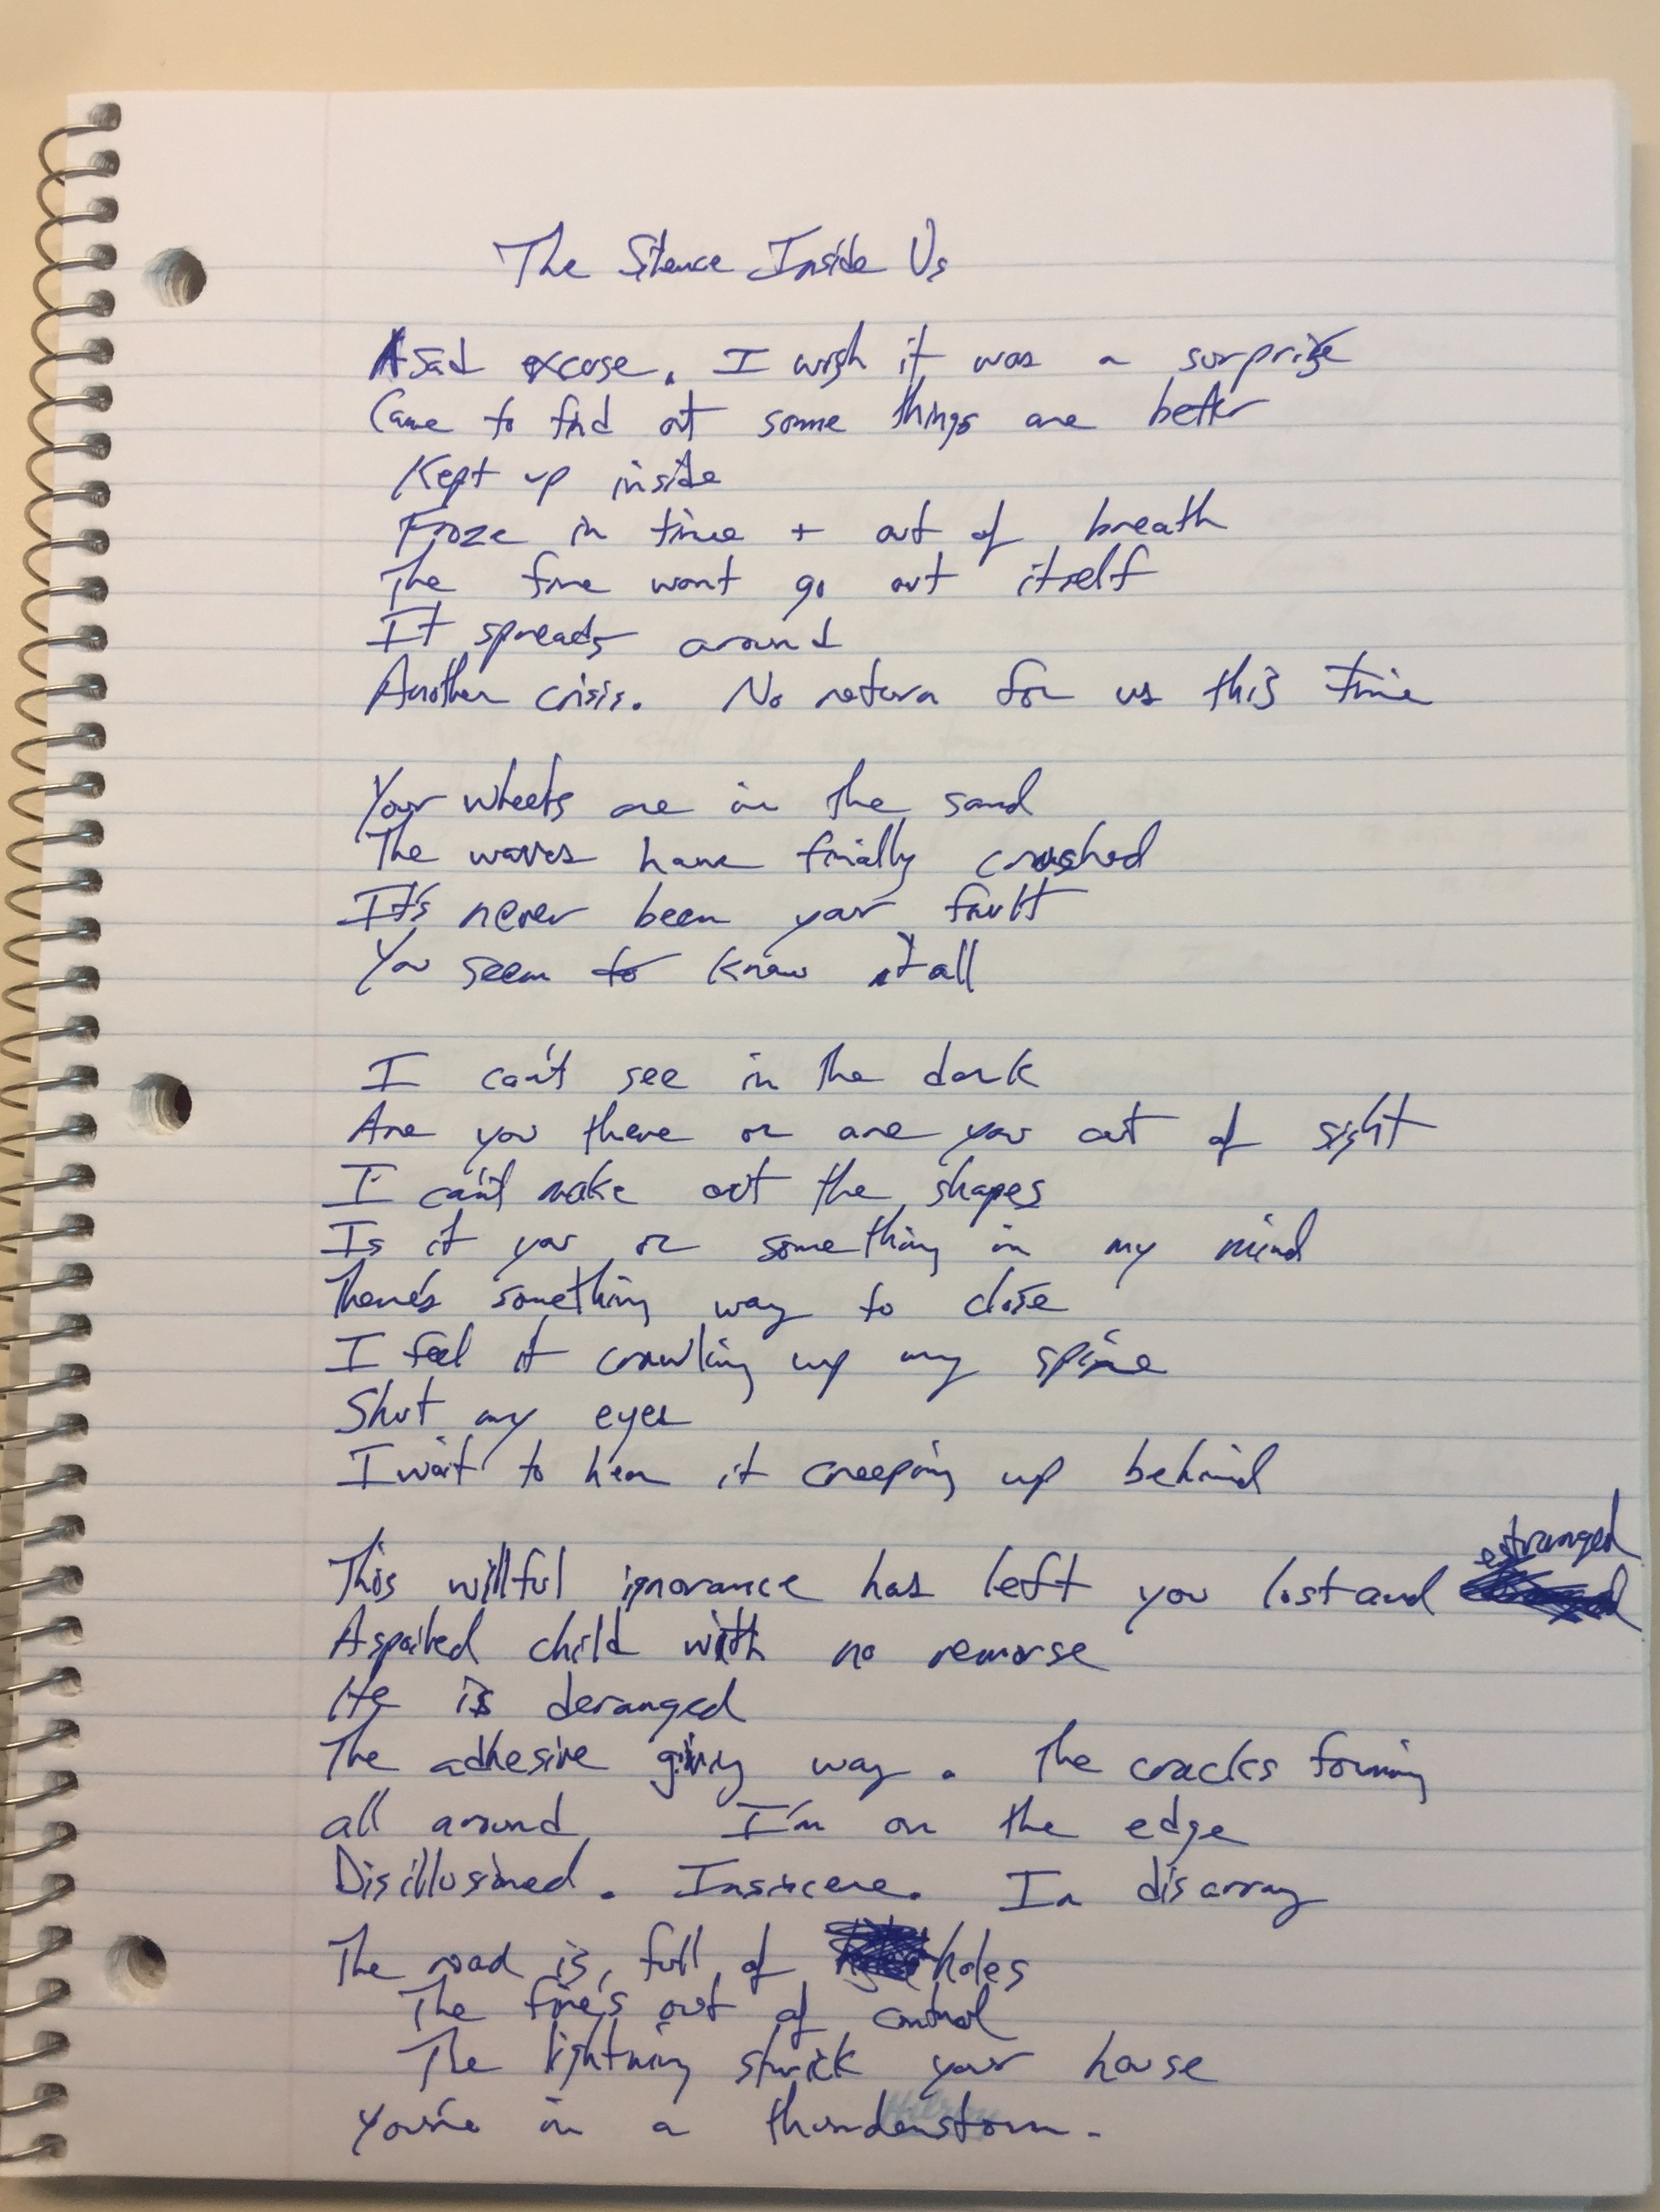 The Silence Inside Us
A sad excuse. I wish it was a surprise
Came to find out some things are better
Kept up inside
Froze in time + out of breath
The fire wont go out itself
It spreads around
Another crisis. No return for us this time
Your wheels are in the sand
The waves have finally crashed
It's never been your fault
You seem to know it all
I can't see in the dark
Are you there or are you out of sight
I can't make out the shapes
Is it you or something in my mind
There's something way to close
I feel it crawling up my spine
Shut my eyes
I wait to hear it creeping up behind
This willful ignorance has left you lost and estranged
A spoiled child with no remorse
He is deranged
The adhesive giving way. The cracks forming
all around I'm on the edge
Disillusioned. Insincere. In disarray
The road is full of holes
The fire's out of control
The lightning struck your house
You're in a thunderstorm.